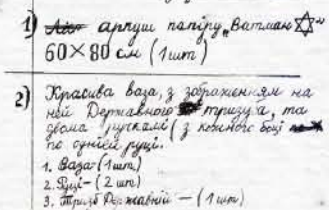 1) аркуш папіру „Ватман ✡“
60×80 см (1 шт)
2) Красива ваза, з зображенням на
ній Державного тризуба, та
двома ручками (з кожного боці
по одній руці.
1. Ваза – (1 шт.)
2. Руці – (2 шт)
3. Тризб Державній – (1 шт)